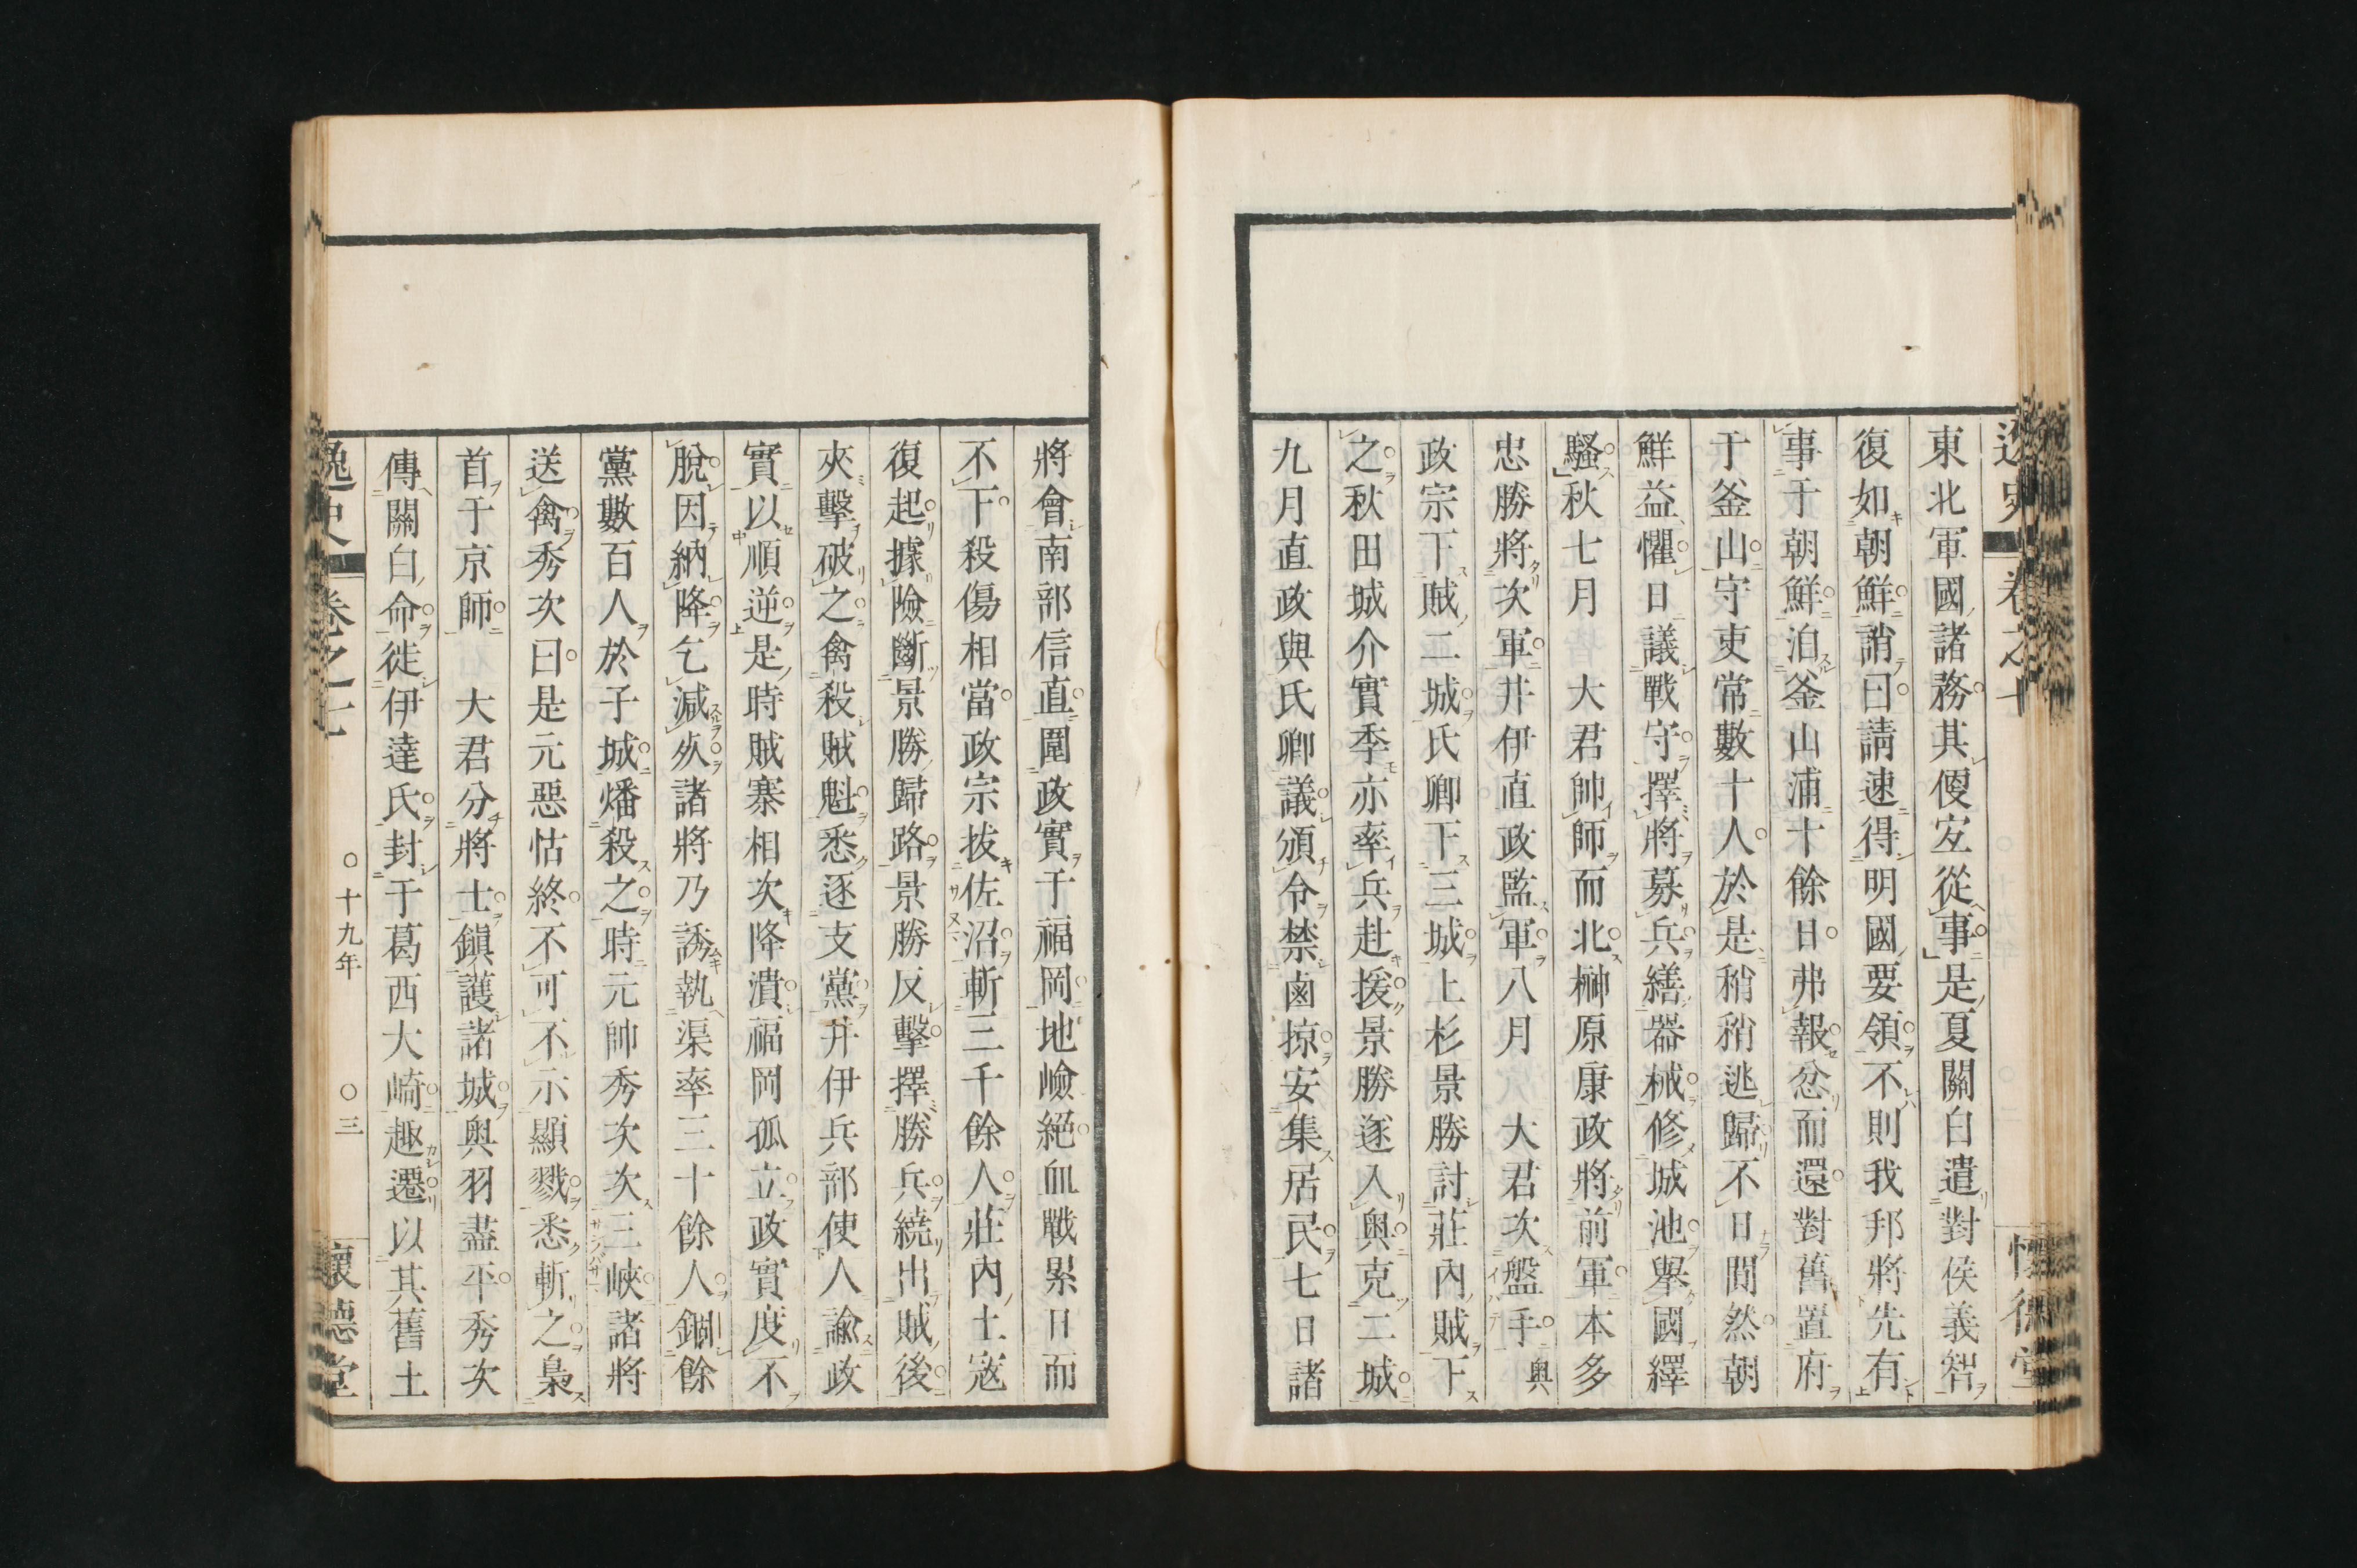 逸史 卷之七 懷德堂
東北軍國諸務其便宐從事是夏關白遣對侯義智
復如朝鮮誚曰請速得明國要領不則我邦將先有
事于朝鮮泊釜山浦十餘日弗報忿而還對舊置府
于釜山守吏常數十人於是稍稍逃歸不日閴然朝
鮮益懼日議戰守擇將募兵繕器械修城池舉國繹
騷秋七月 大君帥師而北榊原康政將前軍本多
忠勝將次軍井伊直政監軍八月 大君次盤手奥
政宗下賊二城氏卿下三城上杉景勝討莊內賊下
之秋田城介實季亦率兵赴援景勝逐入奥克二城
九月直政與氏卿議頒令禁鹵掠安集居民七日諸
將會南部信直圍政實于福岡地嶮絕血戰累日而
不下殺傷相當政宗拔佐沼斬三千餘人莊內土寇
復起據險斷景勝歸路景勝反擊擇勝兵繞出賊後
夾擊破之禽殺賊魁悉逐支黨井伊兵部使人論政
實以順逆是時賊寨相次降潰福岡孤立政實度不
脫因納降乞減死諸將乃誘執渠率三十餘人錮餘
黨數百人於子城燔殺之時元帥秀次次三峽諸將
送禽秀次曰是元惡怙終不可不示顯戮悉斬之梟
首于京師 大君分將士鎮護諸城奥羽盡平秀次
傳關白命徙伊達氏封于葛西大崎趣遷以其舊土
逸史 卷之七 ○十九年 ○三 懷德堂